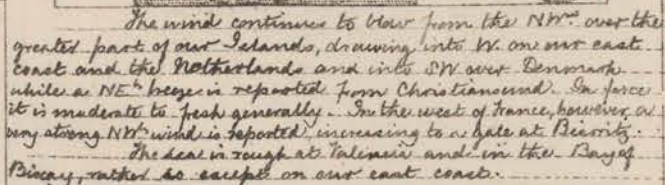 The wind continues to blow from the NWd. over the
greater part of our Islands, drawing into W. on our east
coast and the Netherlands and into SW over Denmark
while a NEly breeze is reported from Christiansund. In force
it is moderate to fresh generally. In the west of France, however, a
very strong NWly wind is reported, increasing to a gale at Biarritz.
The sea is rough at Valencia and in the Bay of
Biscay, rather so except on our east coast.